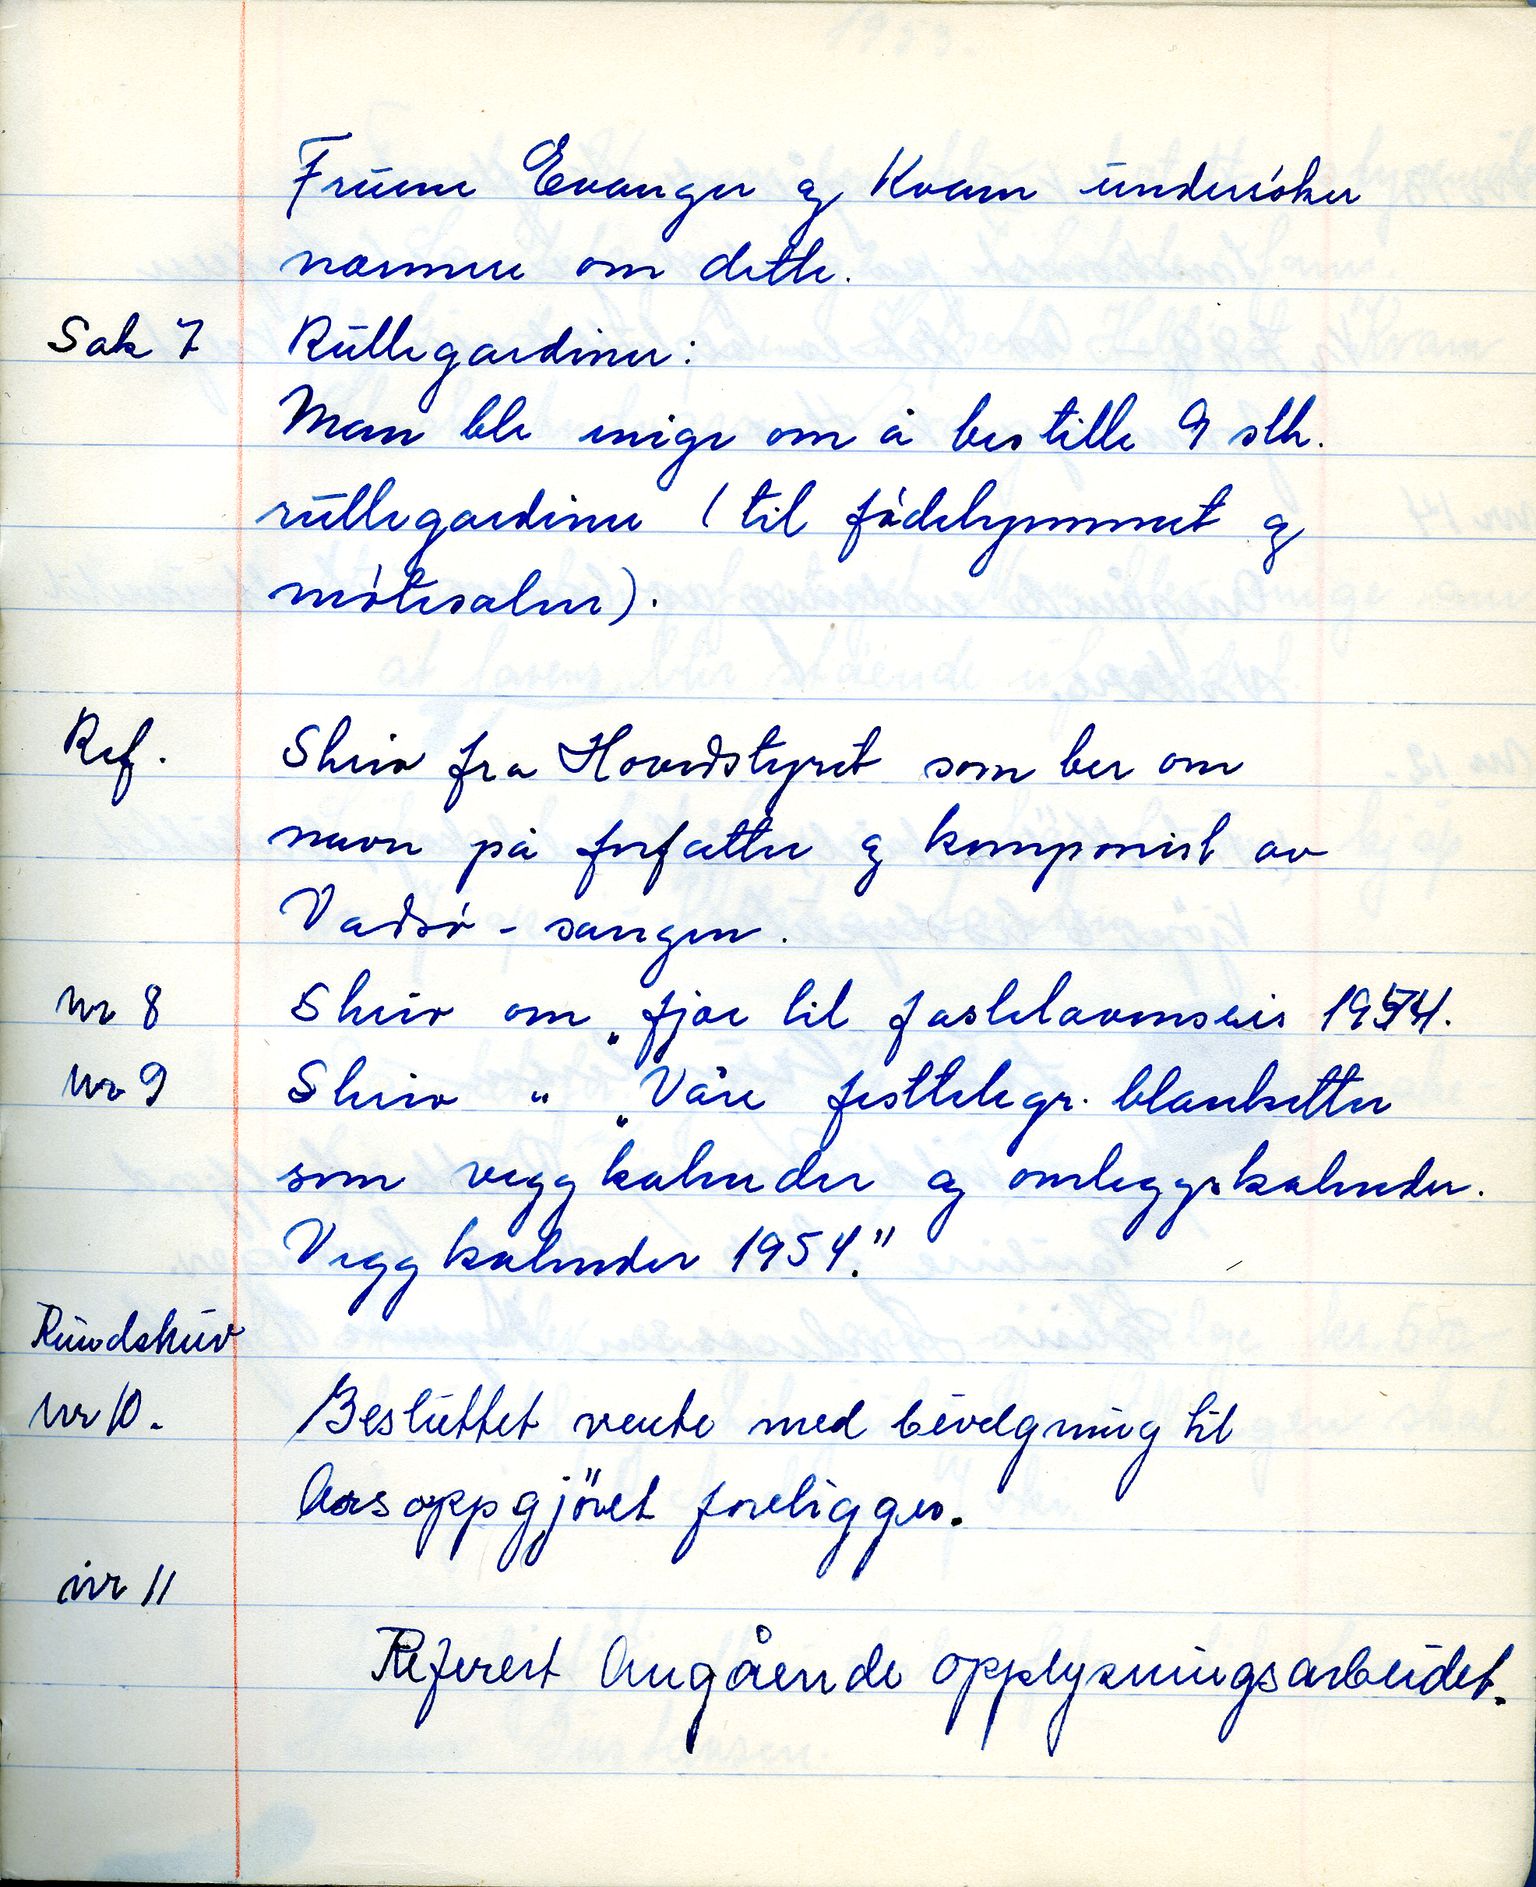 Fruene Evanger og Kvam undersöker
nærmere om dette.
Sak 7 Rullegardiner:
Man ble enige om å bestille 9 stk.
rullegardiner (til födehjemmet og
mötesalen).
Ref. Skriv fra Hovedstyret som ber om
navn på forfatter og komponist av
Vadsö-sangen.
nr 8 Skriv om „fjær til fastelavensris 1954.
nr 9 Skriv " „Våre festtelegr. blanketter
som veggkalender og omleggskalender.
Veggkalender 1954."
Rundskriv
nr 10. Besluttet vente med bevilgning til
Aarsoppgjöret foreligger.
nr 11
Referert Angående opplysningsarbeidet.